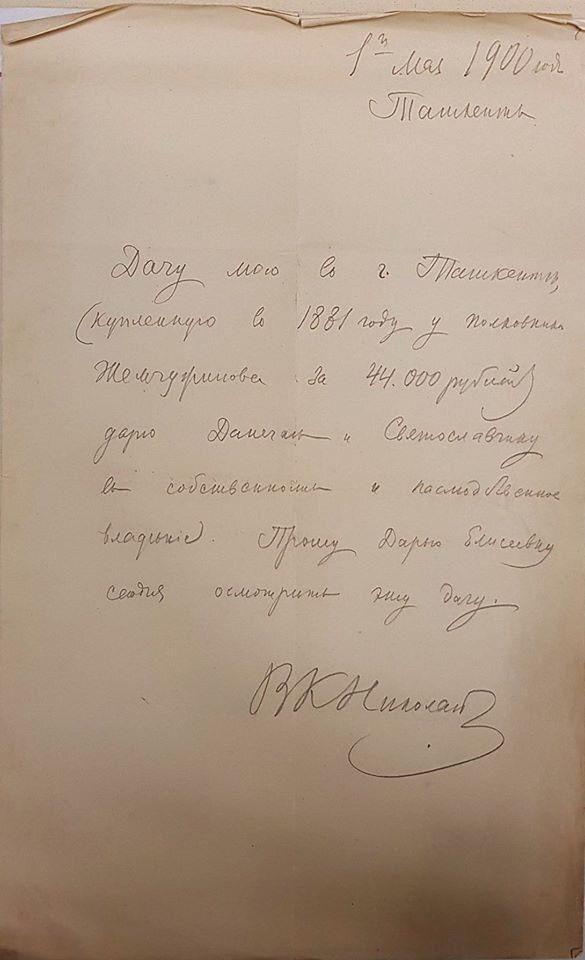 1го Мая 1900 года
Ташкентъ
Дачу мою въ г. Ташкентѣ,
(купленную въ 1881 году у полковника
Жемчужникова за 44.000 рублей)
дарю и Святославчику
въ собственность и наслѣдственное
владѣніе. Прошу Дарью Елисеевну
сегодня осмотрѣть эту дачу.
ВКНиколай